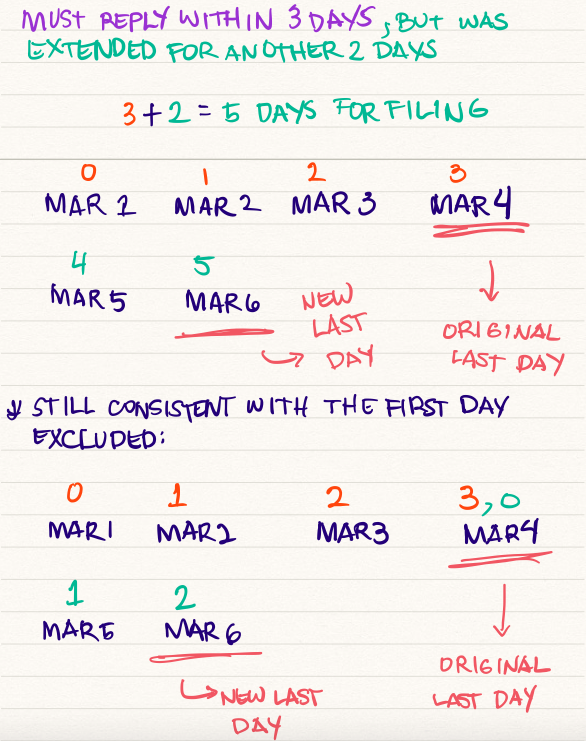 MUST REPLY WITHIN 3 DAYS, BUT WAS
EXTENDED FOR ANOTHER 2 DAYS
3 + 2 = 5 DAYS FOR FILING
0 1 2 3
MAR 1 MAR 2 MAR 3 MAR 4
4 5
MAR 5 MAR 6
NEW
LAST
DAY
ORIGINAL
LAST DAY
STILL CONSISTENT WITH THE FIRST DAY
EXCLUDED:
0 1 2 3, 0
MAR 1 MAR 2 MAR 3 MAR 4
1 2
MAR 5 MAR 6
ORIGINAL
LAST DAY
NEW LAST
DAY